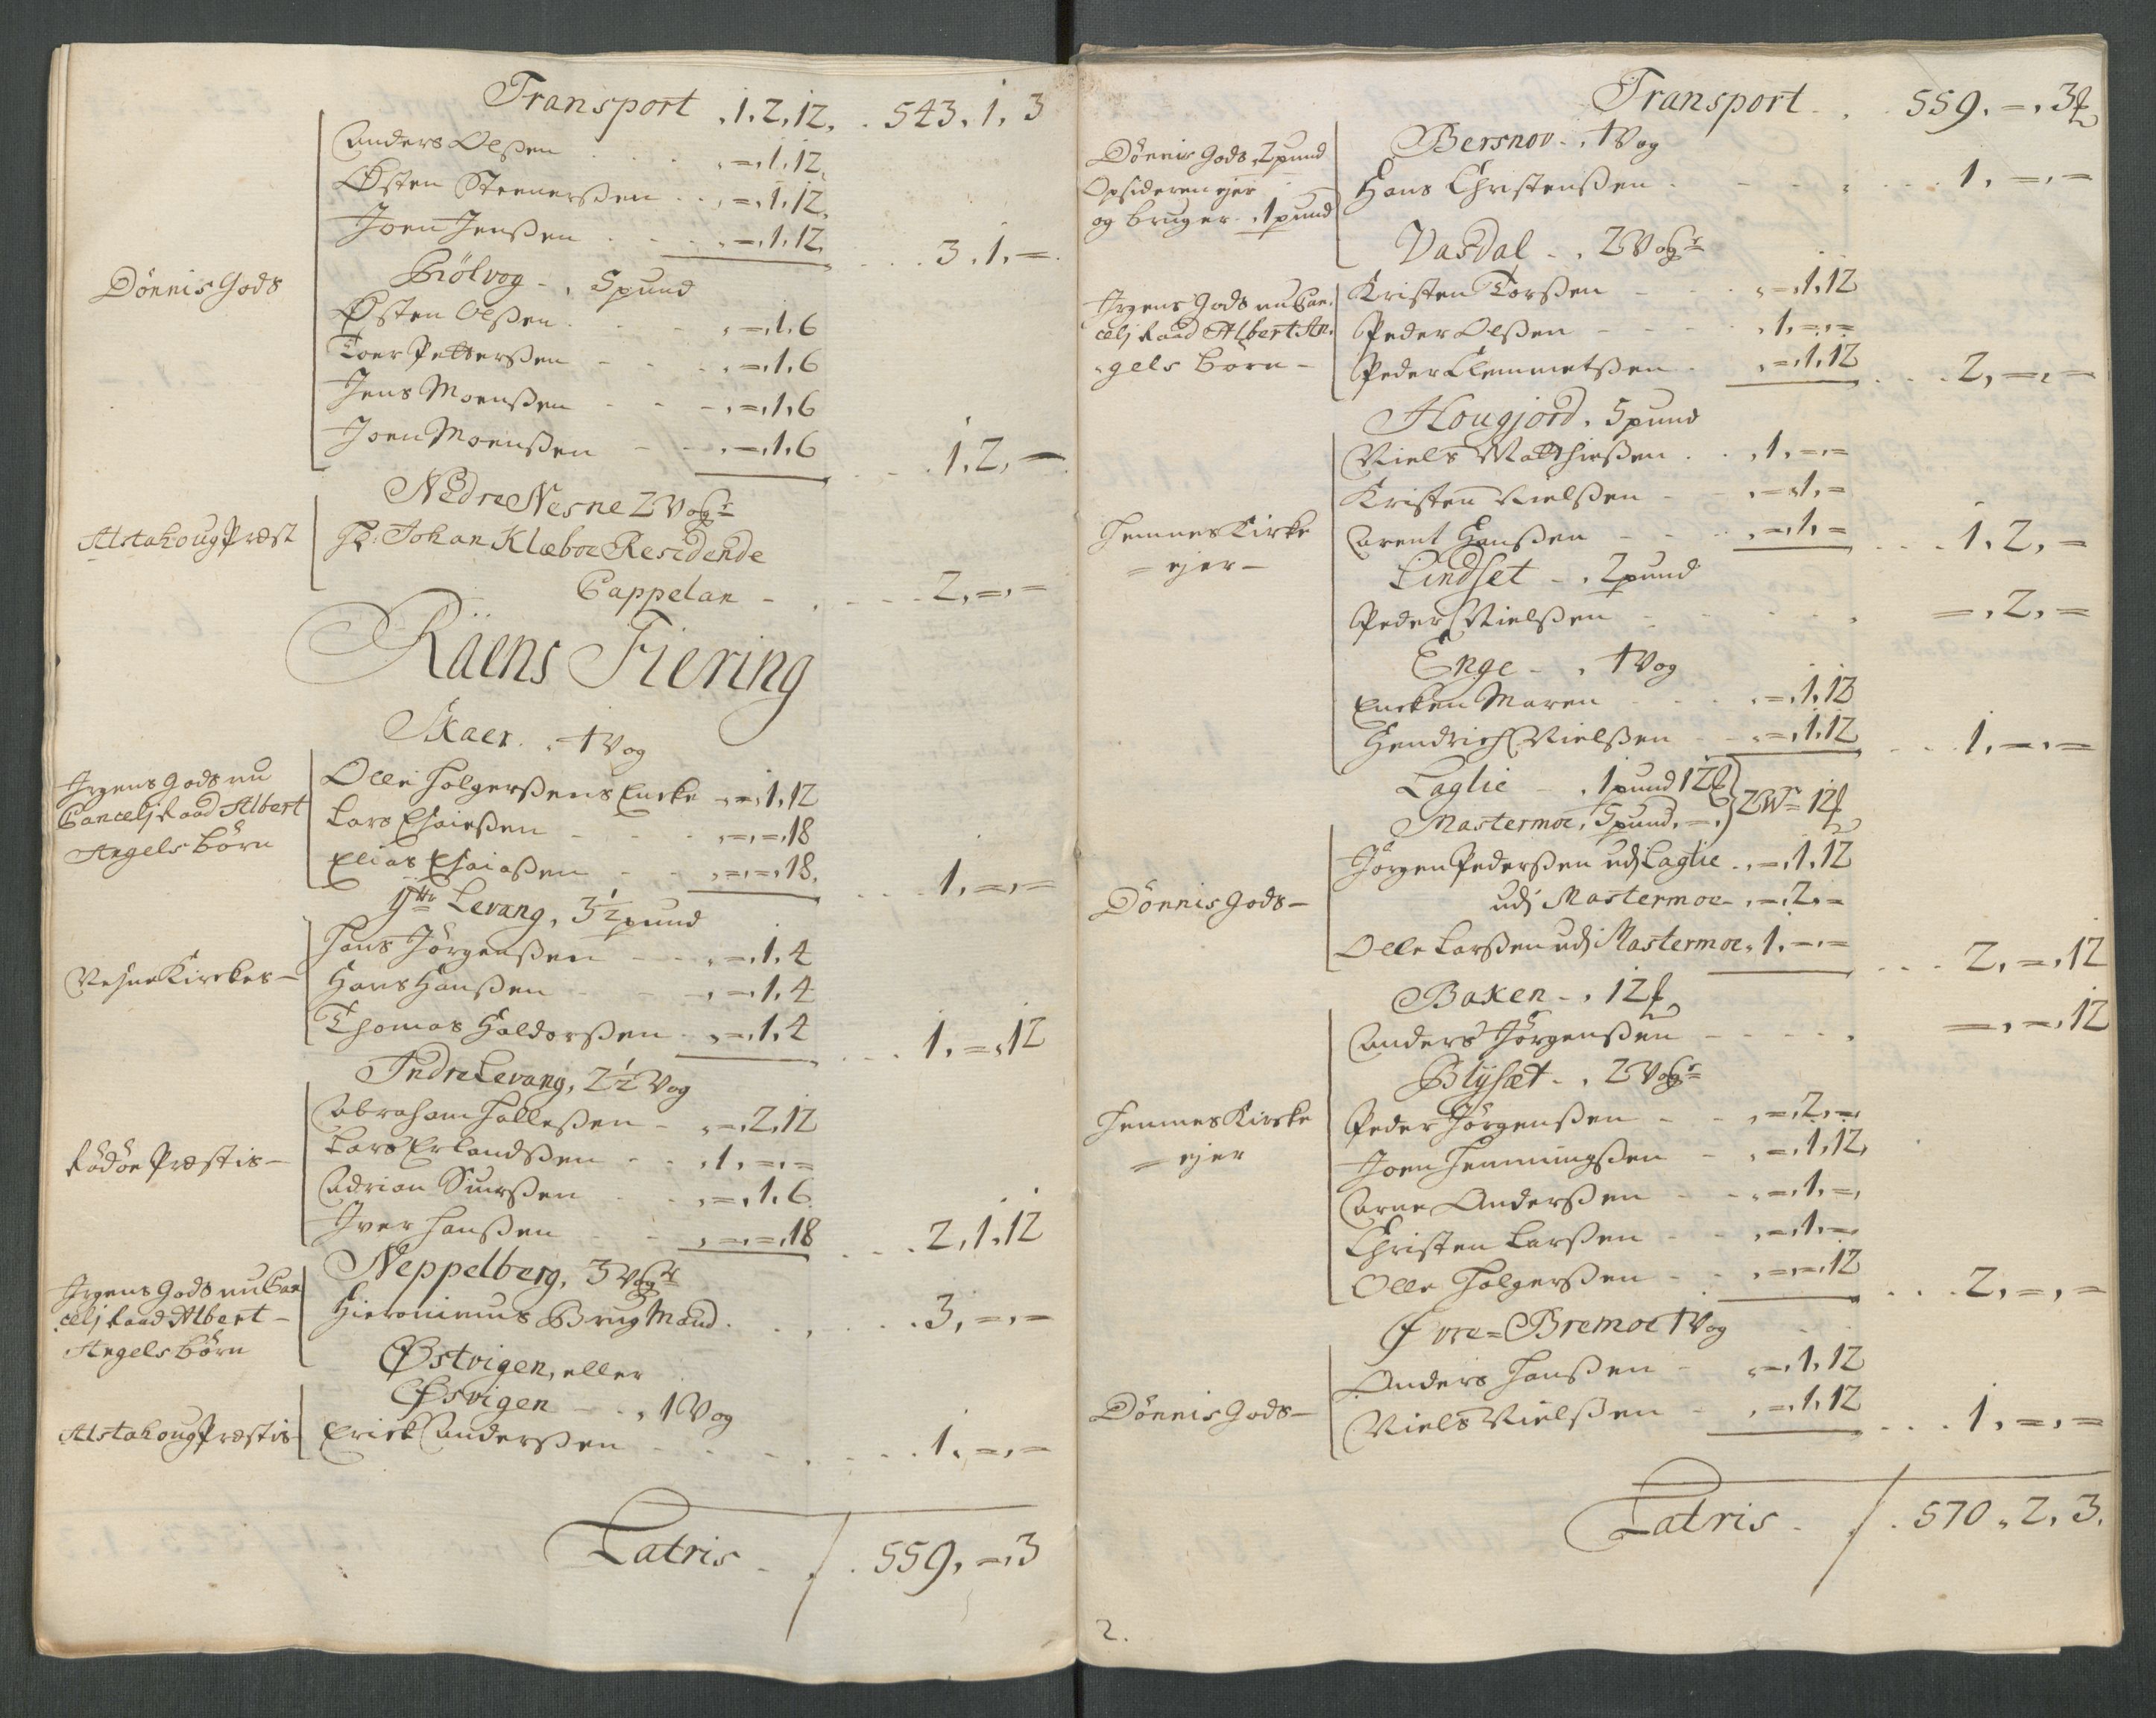 Transport . 1. 2. 12. . 543. 1. 3
Anders Olßen . . . . =. 1. 12.
Østen Steenerßen . . . =. 1. 12.
Joen Jenßen . . . =. 1. 12. . . . 3. 1. =.
Dönnis Gods
Hölvog - . 5 pund
Østen Olßen . . . =. 1. 6
Toer Petterßen - - . =. 1. 6
Jens Moenßen - - . =. 1. 6
Joen Moenßen - - . =. 1. 6 . . 1. 2. =.
Nedre Nesne 2 Vogr
Alstahoug Præst
Hr: Johan Klæboe Residende
Cappelan - . - - . 2. =. =
Räens Fiering
Skaer . . 1 Vog
Irgens Gods nu
Cancelj Raad Albert
Angels börn
Olle Holgerßens Encke . =. 1. 12
Lars Esaießen - - . =. =. 18
Elias Esaiaßen - - . =. =. 18. . . . 1. =. =
Ytter Levang, 3 1/2 pund
Nesne Kirckes -
Hans Jörgenßen - - . =. 1. 4
Hans Hanßen - - . =. 1. 4
Thomas Haldorßen - . =. 1. 4 . . . 1. =. 12
Indre Levang, 2 1/2 Vog
Rödöe Præstis -
Abraham Halleßen - . =. 2. 12
Lars Erlandßen - . . 1. =. =
Adrian Siurßen . . =. 1. 6
Iver Hanßen - - . =. =. 18 . . . 2. 1. 12
Neppelberg, 3 Vogr
Irgens Gods nu Can
celj Raad Albert -
Angels börn
Hieronimus Brugmand . . . . . 3. =. =
Østvigen, eller
Øsvigen - . . 1 Vog
Alstahoug Præstis
Erick Anderßen - - - . . . 1. =. =
Latris - . /. . 559. =. 3
Transport . . . 559. =. 3 ℔
Dönnis Gods . 2 pund
Opsideren ejer
og bruger . . 1 pund
Bersnov - . 1 Vog
Hans Christenßen . - - . . . . 1. =. =
Vasdal - . 2 Vogr
Irgens Gods nu Can.
celj Raad Albert An.
gels börn -
Kristen Torßen - - . =. 1. 12
Peder Olßen - - - . 1. =. =
Peder Clemmetßen . . =. 1. 12 . . . 2. =. =
Hougjord . 5 pund
Hemnes Kirke
= ejer -
Niels Matthießen . . . 1. =. =
Kristen Nielßen - . =. 1. =
Arent Hanßen - - . =. 1. = . . . 1. 2. =
Lindset - . 2 pund
Peder Nielßen - - - - . =. 2. =
Enge - . 1 Vog
Encken Maren - - . =. 1. 12
Hendrich Nielßen - . =. 1. 12 . . . 1. =. =
Laglie - . 1 pund 12 ℔
Mastermoe, 5 pund. =. } 2 Wr 12 ℔
Dönnis Gods -
Jörgen Pederßen udj Laglie . =. 1. 12
udj Mastermoe - . =. 2. =
Olle Larßen udj Mastermoe . 1. =. = . . . 2. =. 12
Baken - . 12 ℔
Anders Jörgenßen - - - . =. =. 12
Blysæt - . 2 Vogr
Hemnes Kirke
= ejer
Peder Jörgenßen - - . =. 2. =.
Joen Henningßen - . =. 1. 12.
Arne Anderßen - - . =. 1. =.
Christen Larßen - - . =. 1. =
Olle Holgerßen - - . =. =. 12 . . . 2. =. =
Øvre = Bremoe 1 Vog
Dönnis Gods -
Anders Hanßen - . =. 1. 12
Niels Nielßen - . =. 1. 12 . . . 1. =. =
Latris - . /. . 570. 2. 3.
2.